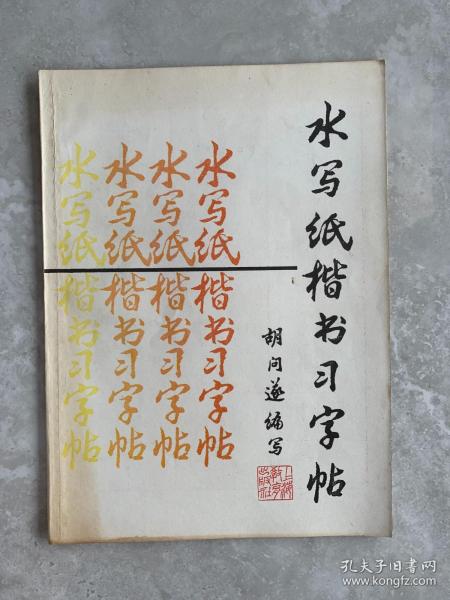 水写纸楷书习字帖
胡问遂编写
上海
教育
出版社
水写纸楷书习字帖
水写纸楷书习字帖
水写纸楷书习字帖
水写纸楷书习字帖
孔夫子旧书网
www.kongfz.com